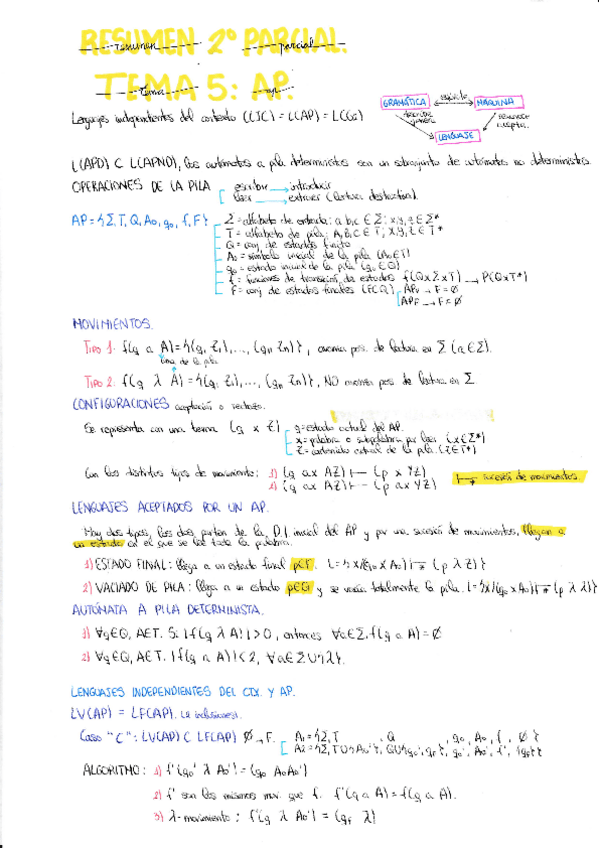 RESUMEN 2º PARCIAL.
TEMA 5: AP.
Lenguajes independientes del contexto (LIC) = L(AP) = L(G2)
GRAMÁTICA MÁQUINA
LENGUAJE
L(APD) ⊂ L(APND), los autómatas a pila deterministas son un subconjunto de autómatas no deterministas.
OPERACIONES DE LA PILA escribir → introducir
leer → extraer (lectura destructiva).
AP = {Σ, T, Q, A0, q0, f, F} Σ = alfabeto de entrada: a, b, c ∈ Σ; x, y, z ∈ Σ*
T = alfabeto de pila: A, B, C ∈ T; X, Y, Z ∈ T*
Q = conj de estados finito
A0 = símbolo inicial de la pila (A0 ∈ T)
q0 = estado inicial de la pila (q0 ∈ Q)
f = funciones de transición de estados f(QxΣxT) → P(QxT*)
F = conj de estados finales (F⊂Q) APV → F = Ø
APF → F = Ø
MOVIMIENTOS.
TIPO 1. f(q a A) = {(q1 Z1), ..., (qn Zn)}, avanza pos. de lectura en Σ (a ∈ Σ).
cima de la pila
TIPO 2. f(q λ A) = {(q1 Z1), ..., (qn Zn)}, NO avanza pos de lectura en Σ.
CONFIGURACIONES aceptación o rechazo.
Se representa con una terna (q x Z) q = estado actual del AP.
x = palabra o subpalabra por leer (x ∈ Σ*)
Z = contenido actual de la pila (Z ∈ T*)
Con los distintos tipos de movimiento: 1) (q ax AZ) ⊢ (p x YZ) ⊢* sucesión de movimientos.
2) (q ax AZ) ⊢ (p ax YZ)
LENGUAJES ACEPTADOS POR UN AP.
Hay dos tipos, los dos parten de la D.I. inicial del AP y por una sucesión de movimientos, llegan a
un estado en el que se lee toda la palabra.
1) ESTADO FINAL: llega a un estado final p∈F. L = {x/(q0 x A0) ⊢* (p λ Z)}
2) VACIADO DE PILA: llega a un estado p∈Q y se vacía totalmente la pila. L = {x/(q0 x A0) ⊢* (p λ λ)}
AUTÓMATA A PILA DETERMINISTA.
1) ∀q∈Q, A∈T. Si |f(q λ A)| > 0, entonces ∀a∈Σ, f(q a A) = Ø
2) ∀q∈Q, A∈T. |f(q a A)| < 2, ∀a∈Σ∪{λ}.
LENGUAJES INDEPENDIENTES DEL CTX. Y AP.
LV(AP) = LF(AP).
Caso "⊂": LV(AP) ⊂ LF(AP) Ø → F. A1 = {Σ, T, Q, q0, A0, f, Ø}
A2 = {Σ, T∪{A0'}, Q∪{q0', qF}, q0', A0', f', {qF}}
ALGORITMO: 1) f'(q0' λ A0') = (q0 A0A0')
2) f' son los mismos mov. que f. f'(q a A) = f(q a A).
3) λ-movimiento: f'(q λ A0') = (qF λ)